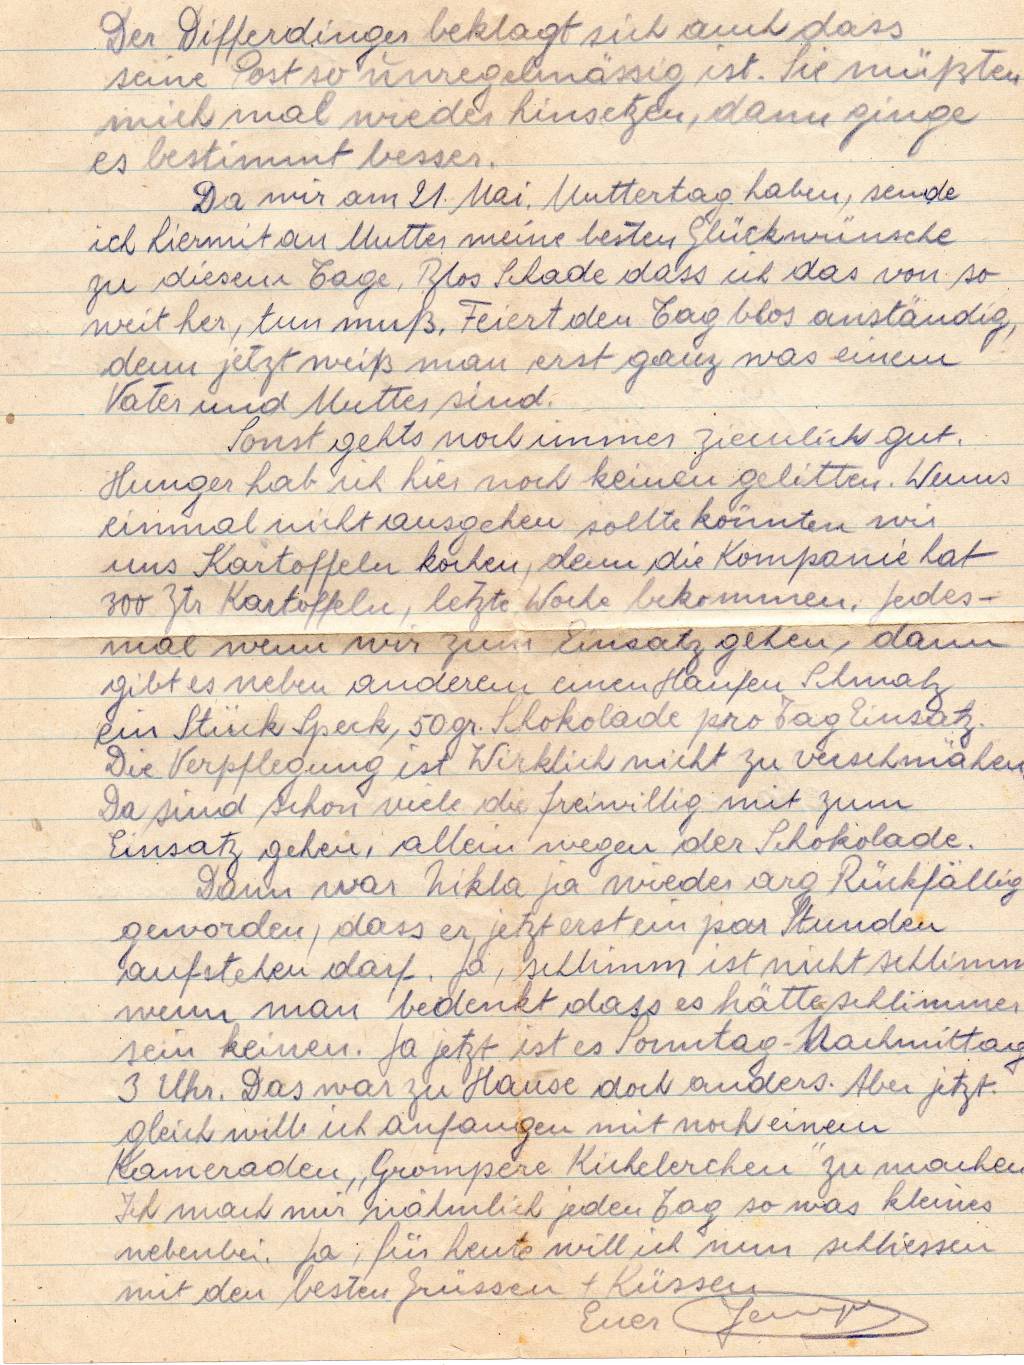 Der Differdinger beklagt sich auch dass
seine Post so unregelmässig ist. Sie müßten
mich mal wieder hinsetzen, dann ginge
es bestimmt besser.
Da wir am 21. Mai. Muttertag haben, sende
ich hiermit an Mutter meine besten Glückwünsche
zu diesem Tage. Blos Schade dass ich das von so
weit her, tun muß. Feiert den Tag blos anständig,
denn jetzt weiß man erst ganz was einem
Vater und Mutter sind.
Sonst gehts noch immer ziemlich gut.
Hunger hab ich hier noch keinen gelitten. Wenns
einmal nicht ausgehen sollte könnten wir
uns Kartoffeln kochen, denn die Kompanie hat
300 Ztr Kartoffeln, letzte Woche bekommen. Jedes-
mal wenn wir zum Einsatz gehen, dann
gibt es neben anderem einen Haufen Schmalz
ein Stück Speck, 50gr. Schokolade pro Tag Einsatz.
Die Verpflegung ist Wirklich nicht zu verschmähen
Da sind schon viele die freiwillig mit zum
Einsatz gehen, allein wegen der Schokolade.
Dann war Nikla ja wieder arg Rückfällig
geworden, dass er jetzt erst ein par Stunden
aufstehen darf. Ja, schlimm ist nicht schlimm
wenn man bedenkt dass es hätte schlimmer
sein keinen. Ja jetzt ist es Sonntag-Nachmittag
3 Uhr. Das war zu Hause doch anders. Aber jetzt.
gleich will ich anfangen mit noch einem
Kameraden „Grompere Kichelercher" zu machen
Ich mach mir nähmlich jeden Tag so was kleines
nebenbei. Ja, für heute will ich nun schliessen
mit den besten Grüssen + Küssen
Euer